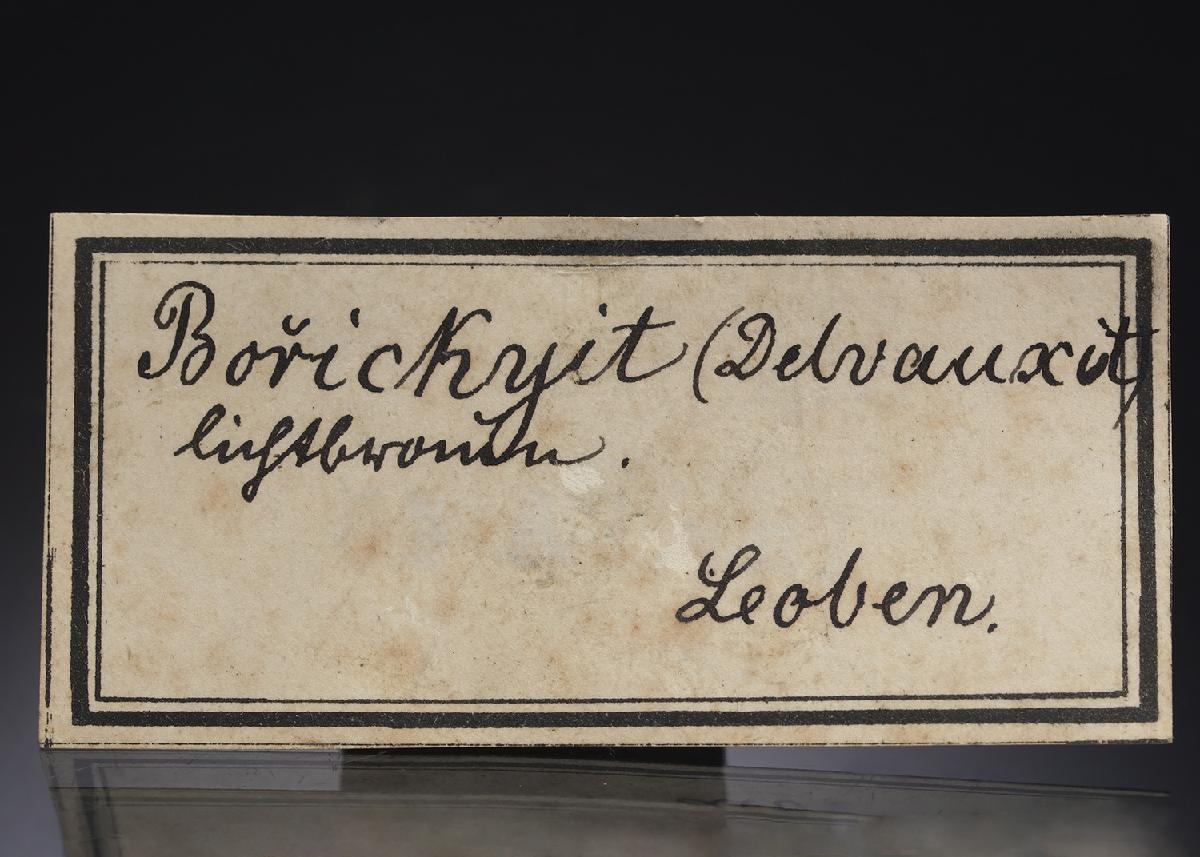 Bořickyit (Delvauxit)
lichtbraun.
Leoben.